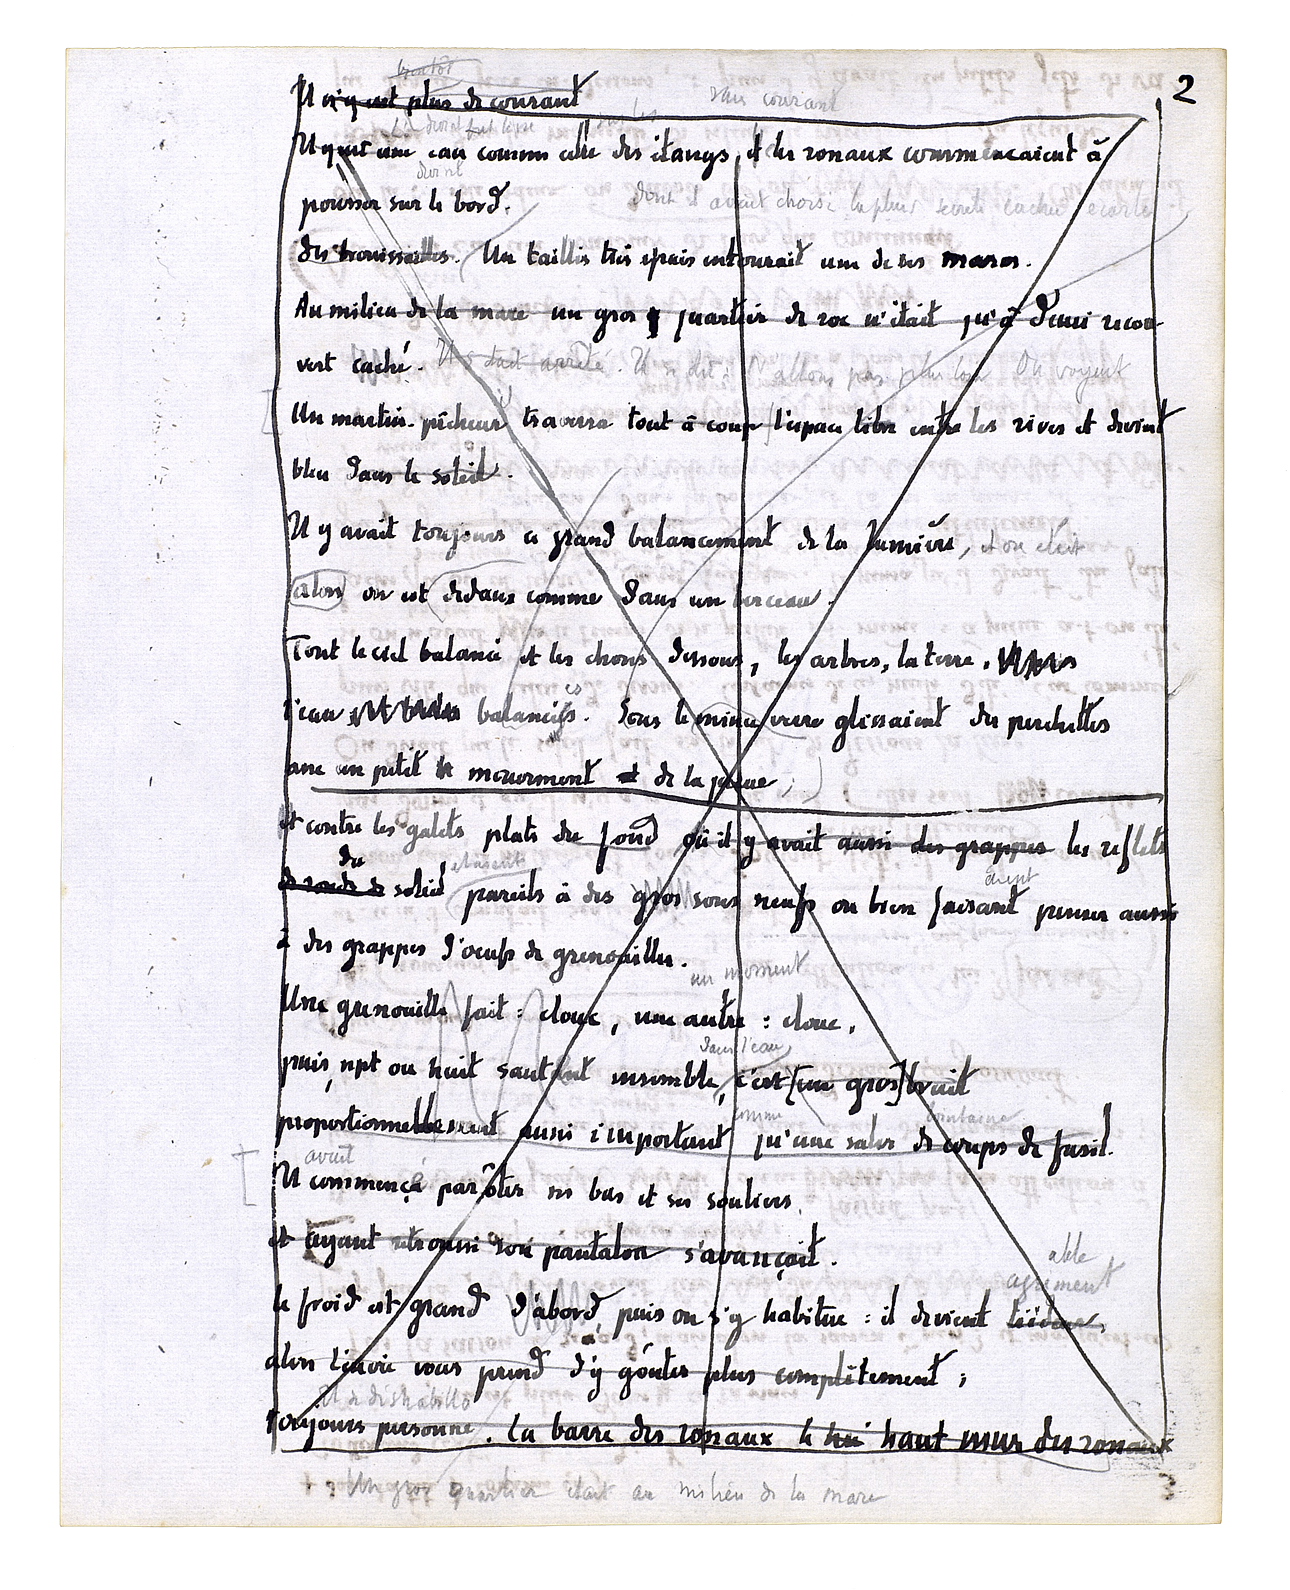 2
bientôt
Il n'y eut plus de courant
sans courant
Il y eut une eau comme celle des étangs, et les roseaux commençaient à
devint
pousser sur le bord.
dont il avait choisi la plus secrète cachée écartée
des broussailles. Un taillis très épais entourait une de ses mares.
Au milieu de la mare un gros quartier de roc n'était qu'à demi recou-
vert caché. Il s'était arrêté. Il se dit : N'allons pas plus loin On voyent
Un martin-pêcheur traversa tout à coup l'espace libre entre les rives et devint
bleu dans le soleil.
Il y avait toujours ce grand balancement de la lumière, et on était
alors on est dedans comme dans un berceau.
Tout le ciel balancé et les choses dessous, les arbres, la terre,
l'eau balancés. Sous le mince verre glissaient des perchettes
es
avec un petit mouvement de la queue ;
et contre les galets plats du fond où il y avait aussi des grappes les reflets
du
de ronds de soleil pareils à des gros sous neufs ou bien faisant penser aussi
étaient
aient
à des grappes d'œufs de grenouilles.
un moment
Une grenouille fait : clouc, une autre : clouc,
dans l'eau
puis sept ou huit sautant ensemble, c'est [un gros] bruit
comme
lointaine
proportionnellement aussi important qu'une salve de coups de fusil.
avait
Il commença par ôter ses bas et ses souliers,
et ayant retroussé son pantalon s'avançait.
able
agrément
le froid est grand d'abord, puis on s'y habitue : il devient tiédeur,
alors l'envie vous prend d'y goûter plus complètement ;
Il se déshabilla
Toujours personne. La barre des roseaux le haut mur des roseaux
+ Un gros quartier était au milieu de la mare